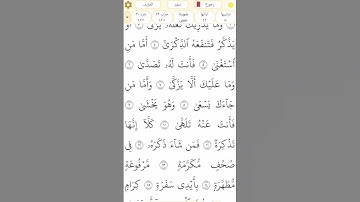 وَمَا يُدْرِيكَ لَعَلَّهُۥ يَزَّكَّىٰٓ ۝٣ أَوْ
يَذَّكَّرُ فَتَنفَعَهُ ٱلذِّكْرَىٰٓ ۝٤ أَمَّا مَنِ
ٱسْتَغْنَىٰ ۝٥ فَأَنتَ لَهُۥ تَصَدَّىٰ ۝٦
وَمَا عَلَيْكَ أَلَّا يَزَّكَّىٰ ۝٧ وَأَمَّا مَن
جَآءَكَ يَسْعَىٰ ۝٨ وَهُوَ يَخْشَىٰ ۝٩
فَأَنتَ عَنْهُ تَلَهَّىٰ ۝١٠ كَلَّآ إِنَّهَا
تَذْكِرَةٌ ۝١١ فَمَن شَآءَ ذَكَرَهُۥ ۝١٢ فِى
صُحُفٍ مُّكَرَّمَةٍ ۝١٣ مَّرْفُوعَةٍ
مُّطَهَّرَةٍۭ ۝١٤ بِأَيْدِى سَفَرَةٍ ۝١٥ كِرَامٍۭ